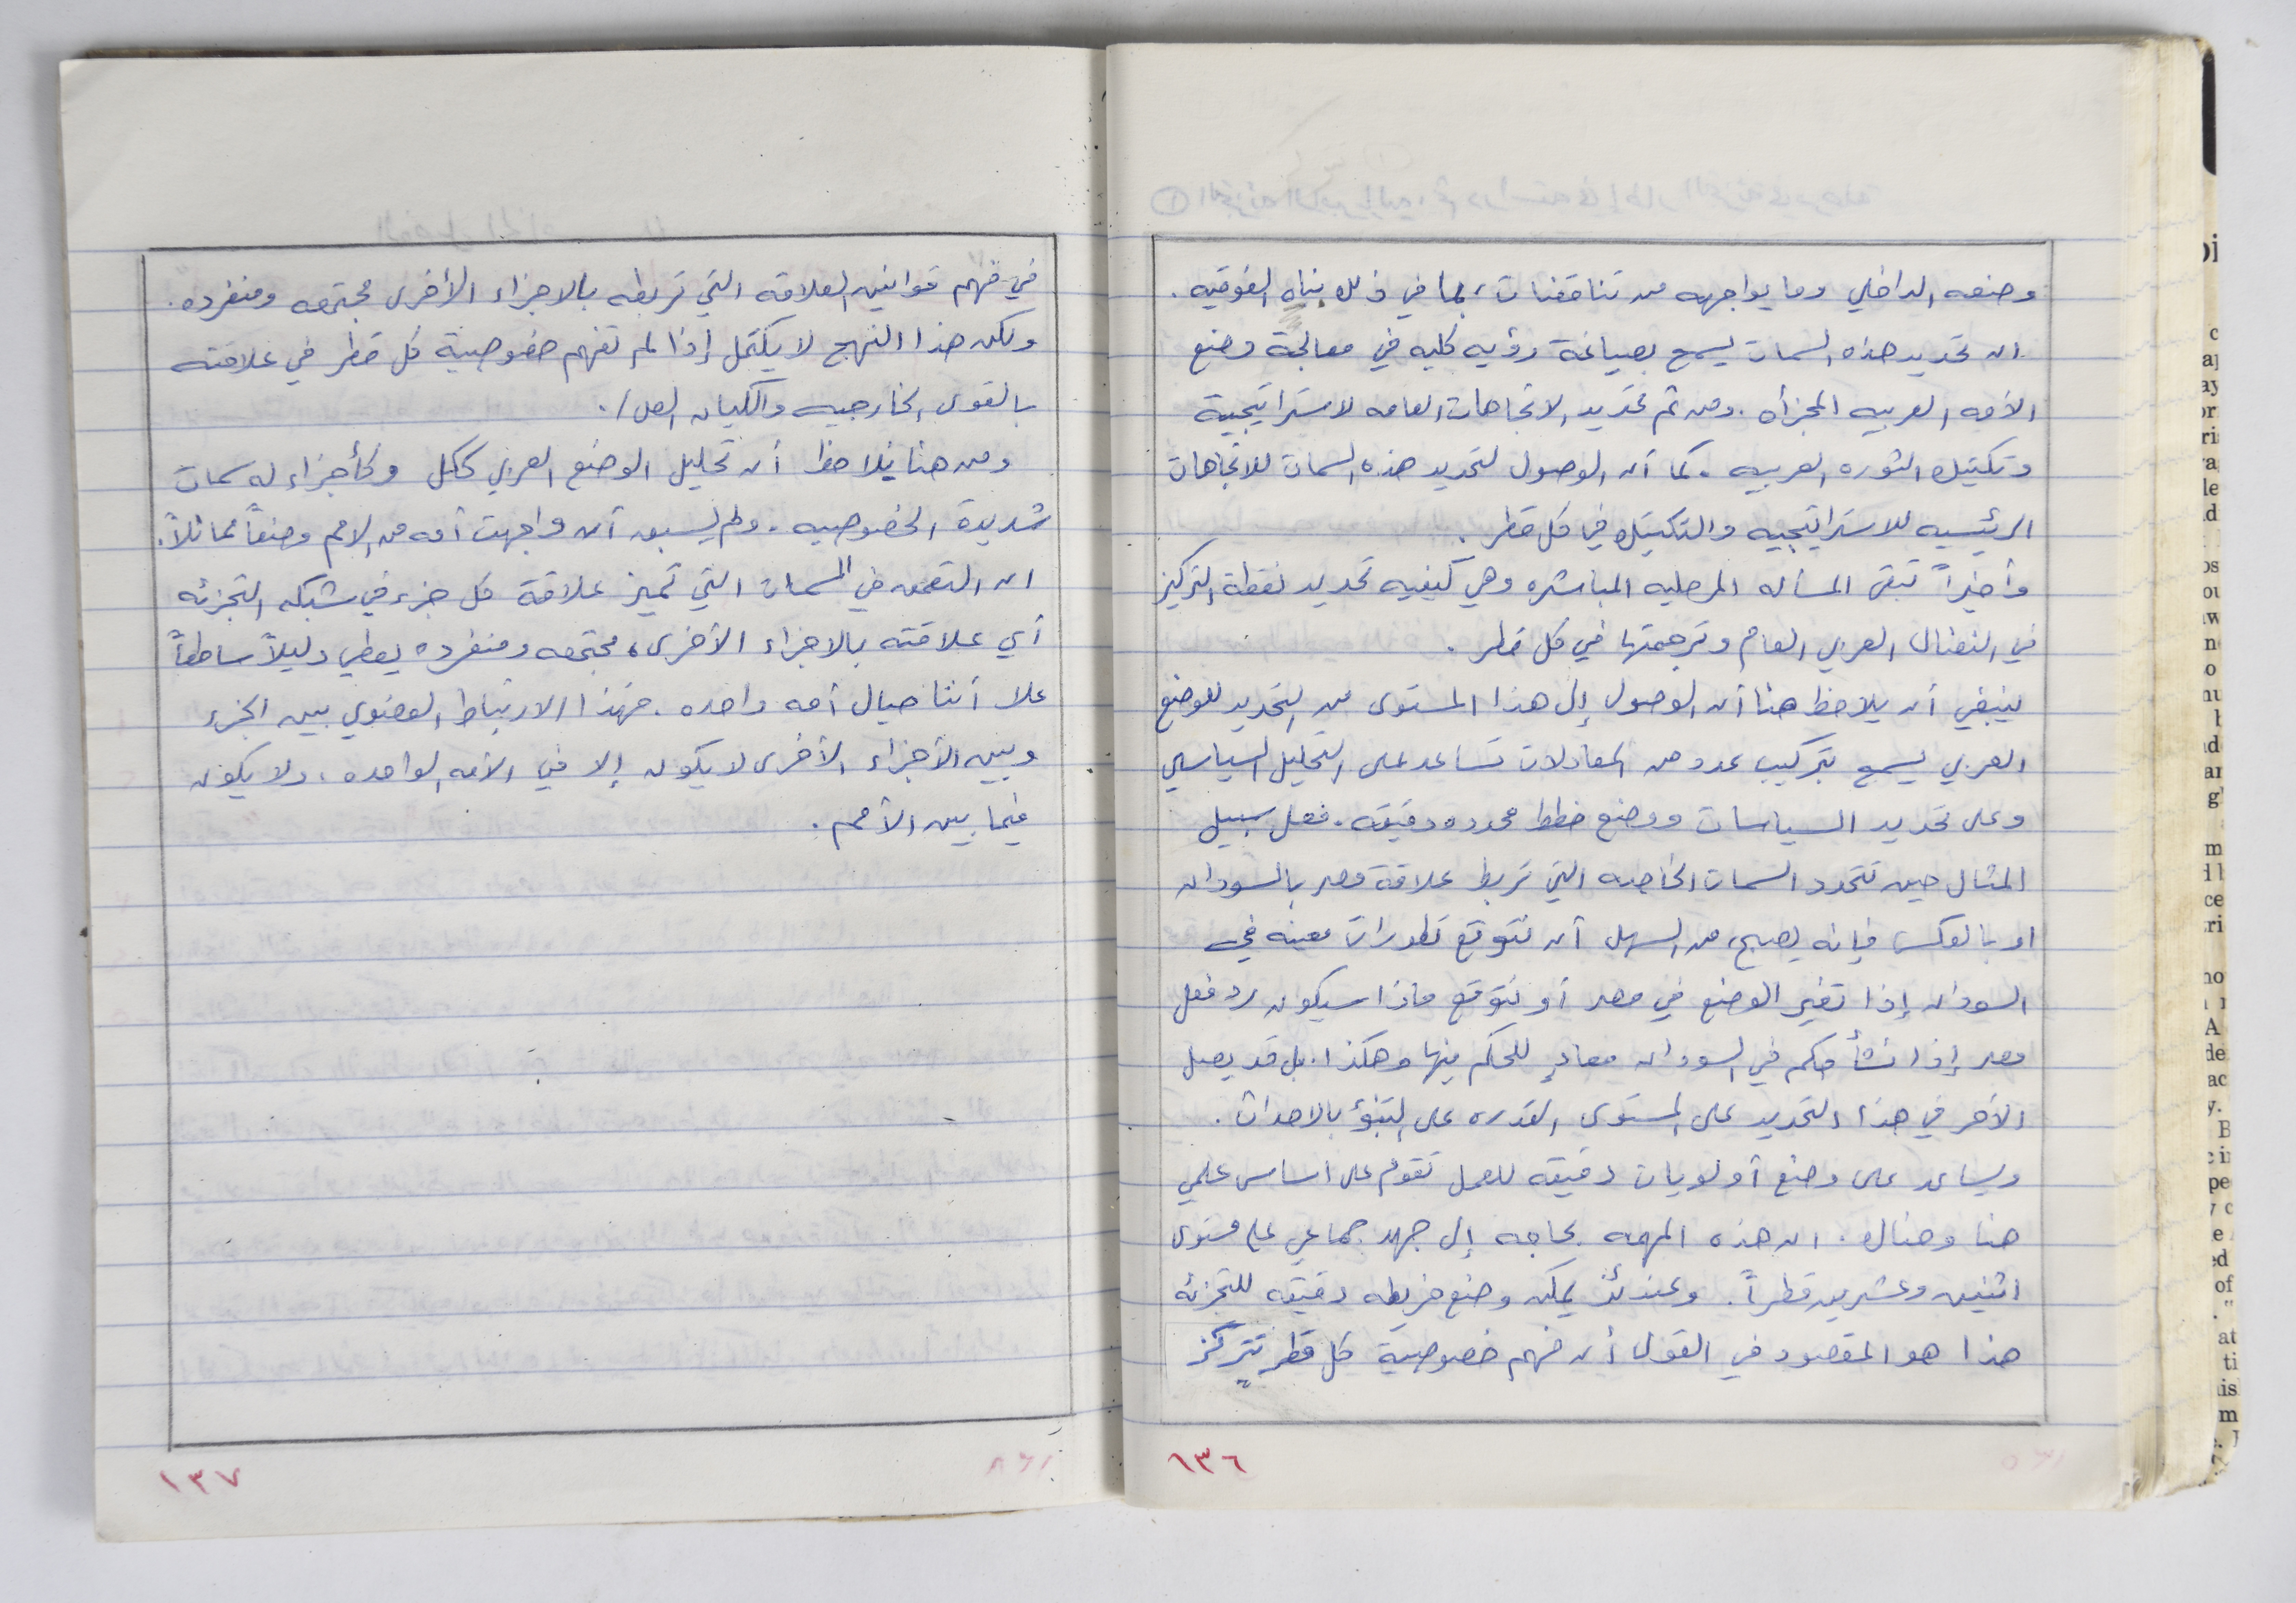 وضعه الداخلي وما يواجهه من تناقضات، بما في ذلك بناه الفوقيه.
ان تحديد هذه السمات يسمح بصياغة رؤيه كليه في معالجة وضع
الأمه العربيه المجزأه. ومن ثم تحديد الاتجاهات العامه لاستراتيجية
وتكتيك الثوره العربيه. كما أن الوصول لتحديد هذه السمات للاتجاهات
الرئيسيه للاستراتيجيه والتكتيك في كل قطر.
وأخيراً تبقى المساله المرحليه المباشره وهي كيفيه تحديد نقطة التركيز
في النضال العربي العام وترجمتها في كل قطر.
ينبغي أن يلاحظ هنا أن الوصول إلى هذا المستوى من التحديد للوضع
العربي يسمح بتركيب عدد من المعادلات تساعد على التحليل السياسي
وعلى تحديد السياسات ووضع خطط محدده دقيقه. فعلى سبيل
المثال حين تتحدد السمات الخاصه التي تربط علاقة مصر بالسودان
او بالعكس فإنه يصبح من السهل أن نتوقع تطورات معينه في
السودان إذا تغير الوضع في مصر أو نتوقع ماذا سيكون رد فعل
مصر إذا نشأ حكم في السودان معادٍ للحكم فيها وهكذا. بل قد يصل
الأمر في هذا التحديد على المستوى القدره على التنبؤ بالاحداث.
ويساعد على وضع أولويات دقيقه للعمل تقوم على اساس علمي
هنا وهناك. ان هذه المهمه بحاجه إلى جهد جماعي على مستوى
اثنين وعشرين قطراً. وعندئذٍ يمكن وضع خريطه دقيقه للتجزئه
هذا هو المقصود في القول أن فهم خصوصية كل قطر تتركز
١٣٦
في فهم قوانين العلاقه التي تربطه بالاجزاء الأخرى مجتمعه ومنفرده.
ولكن هذا النهج لا يكتمل إذا لم تفهم خصوصية كل قطر في علاقته
بالقوى الخارجيه والكيان الص/.
ومن هنا يلاحظ أن تحليل الوضع العربي ككل وكأجزاء له سمات
شديدة الخصوصيه. ولم يسبق أن واجهت أمه من الامم وضعاً مماثلاً.
ان التعمق في السمات التي تميز علاقة كل جزء في شبكه التجزئه
أي علاقته بالاجزاء الأخرى، مجتمعه ومنفرده يعطي دليلاً ساطعاً
علا أننا حيال أمه واحده. فهذا الارتباط العضوي بين الجزء
وبين الأجزاء الأخرى لا يكون إلا في الأمه الواحده، ولا يكون
فيما بين الأمم.
١٣٧